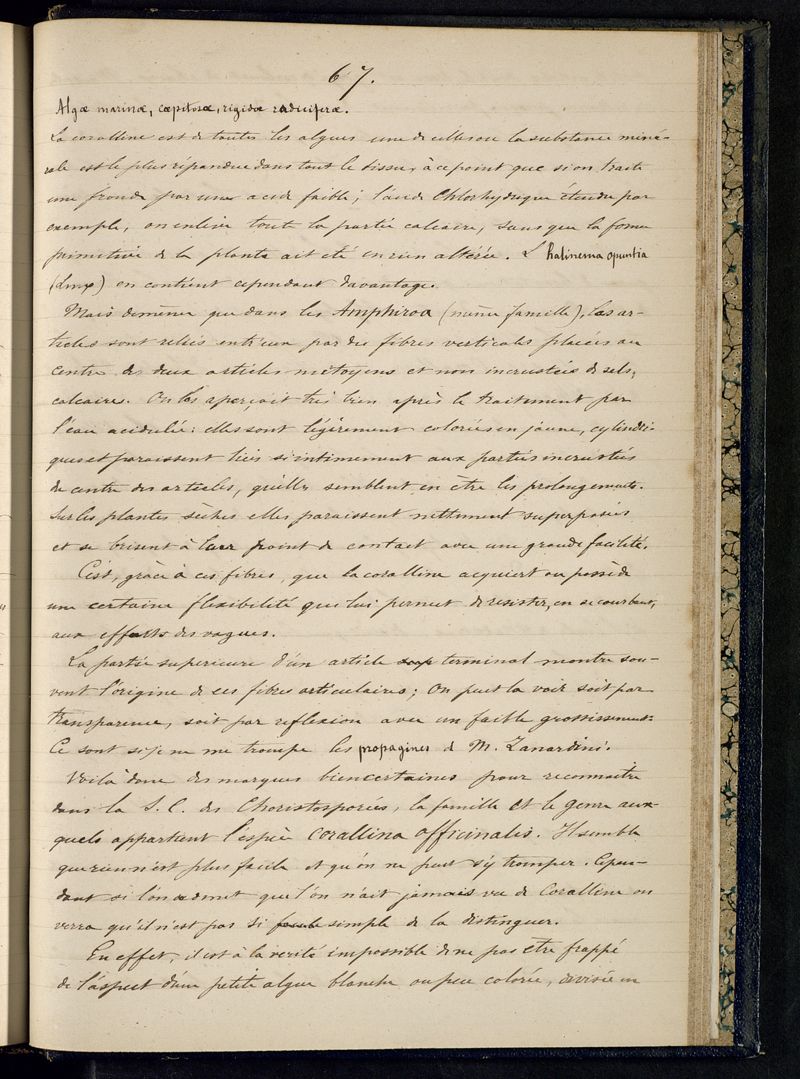 67.
Algæ marinæ, cæpitosæ, rigidæ radiciferæ.
La coralline est de toutes les algues une de celles ou la substance miné-
rale est le plus répandue dans tout le tissu, à ce point que si on traite
une fronde par une acide faible; l'acide Chlorhydrique étendu par
exemple, on enlève toute la partie calcaire, sans que la forme
primitive de la plante ait été en rien altérée. L'halinema opuntia
(Lmx) en contient cependant davantage.
Mais de même que dans les Amphiroa (même famille), les ar-
ticles sont reliés entr'eux par des fibres verticales placées au
centre des deux articles mitoyens et non incrustées de sels,
calcaires. On les aperçoit très bien après le traitement par
l'eau acidulée: elles sont légèrement colorées en jaune, cylindri-
ques et paraissent liées si intimement aux parties incrustées
du centre des articles, qu'elles semblent en être les prolongements.
Sur les plantes sèches elles paraissent nettement superposées
et se brisent à leur point de contact avec une grande facilité.
C'est, grâce à ces fibres, que la coralline acquiert ou possède
une certaine flexibilité qui lui permet de resister, en se courbant,
aux effets des vagues.
La partie superieure d'un article terminal montre sou-
vent l'origine de ces fibres articulaires; On peut la voir soit par
transparence, soit par reflexion avec un faible grossissement.
Ce sont si je ne me trompe les propagines de M. Zanardini.
Voilà donc des marques bien certaines pour reconnaitre
dans la S. C. des Choristosporées, la famille et le genre aux-
quels appartient l'espèce Corallina officinalis. Il semble
que rien n'est plus facile et qu'on ne peut s'y tromper. Cepen-
dant si l'on admet que l'on n'ait jamais vu de Coralline on
verra qu'il n'est pas si simple de la distinguer.
En effet, il est à la verité impossible de ne pas être frappé
de l'aspect d'une petite algue blanche ou peu colorée, divisée en